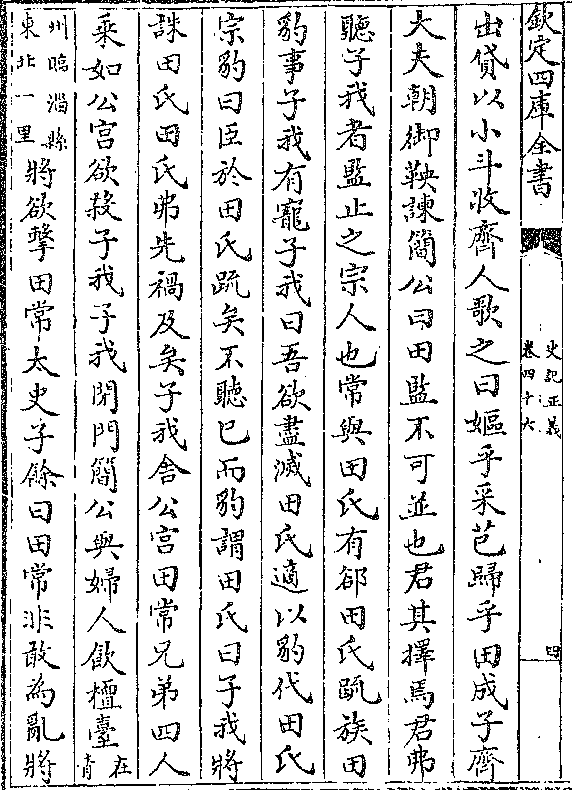 欽定四庫全書
史記正義
卷四十六
四
出貸以小斗收齊人歌之曰嫗乎采芑歸乎田成子齊
大夫朝御鞅諫簡公曰田監不可並也君其擇焉君弗
聽子我者監止之宗人也常與田氏有郤田氏䟽族田
豹事子我有寵子我曰吾欲盡滅田氏適以豹代田氏
宗豹曰臣於田氏䟽矣不聽已而豹謂田氏曰子我將
誅田氏田氏弗先禍及矣子我舍公宮田常兄弟四人
乘如公宮欲殺子我子我閉門簡公與婦人飲檀臺在青
州臨淄縣東北一里將欲擊田常太史子餘曰田常非敢為亂將